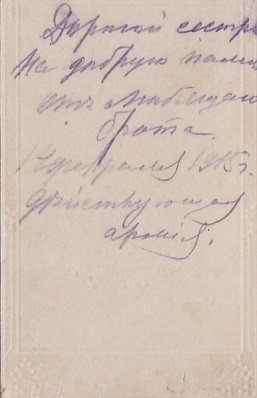 Дорогой сестре
На добрую память
отъ любящаго
брата.
14 февраля 1915 г.
Действующая
армия.